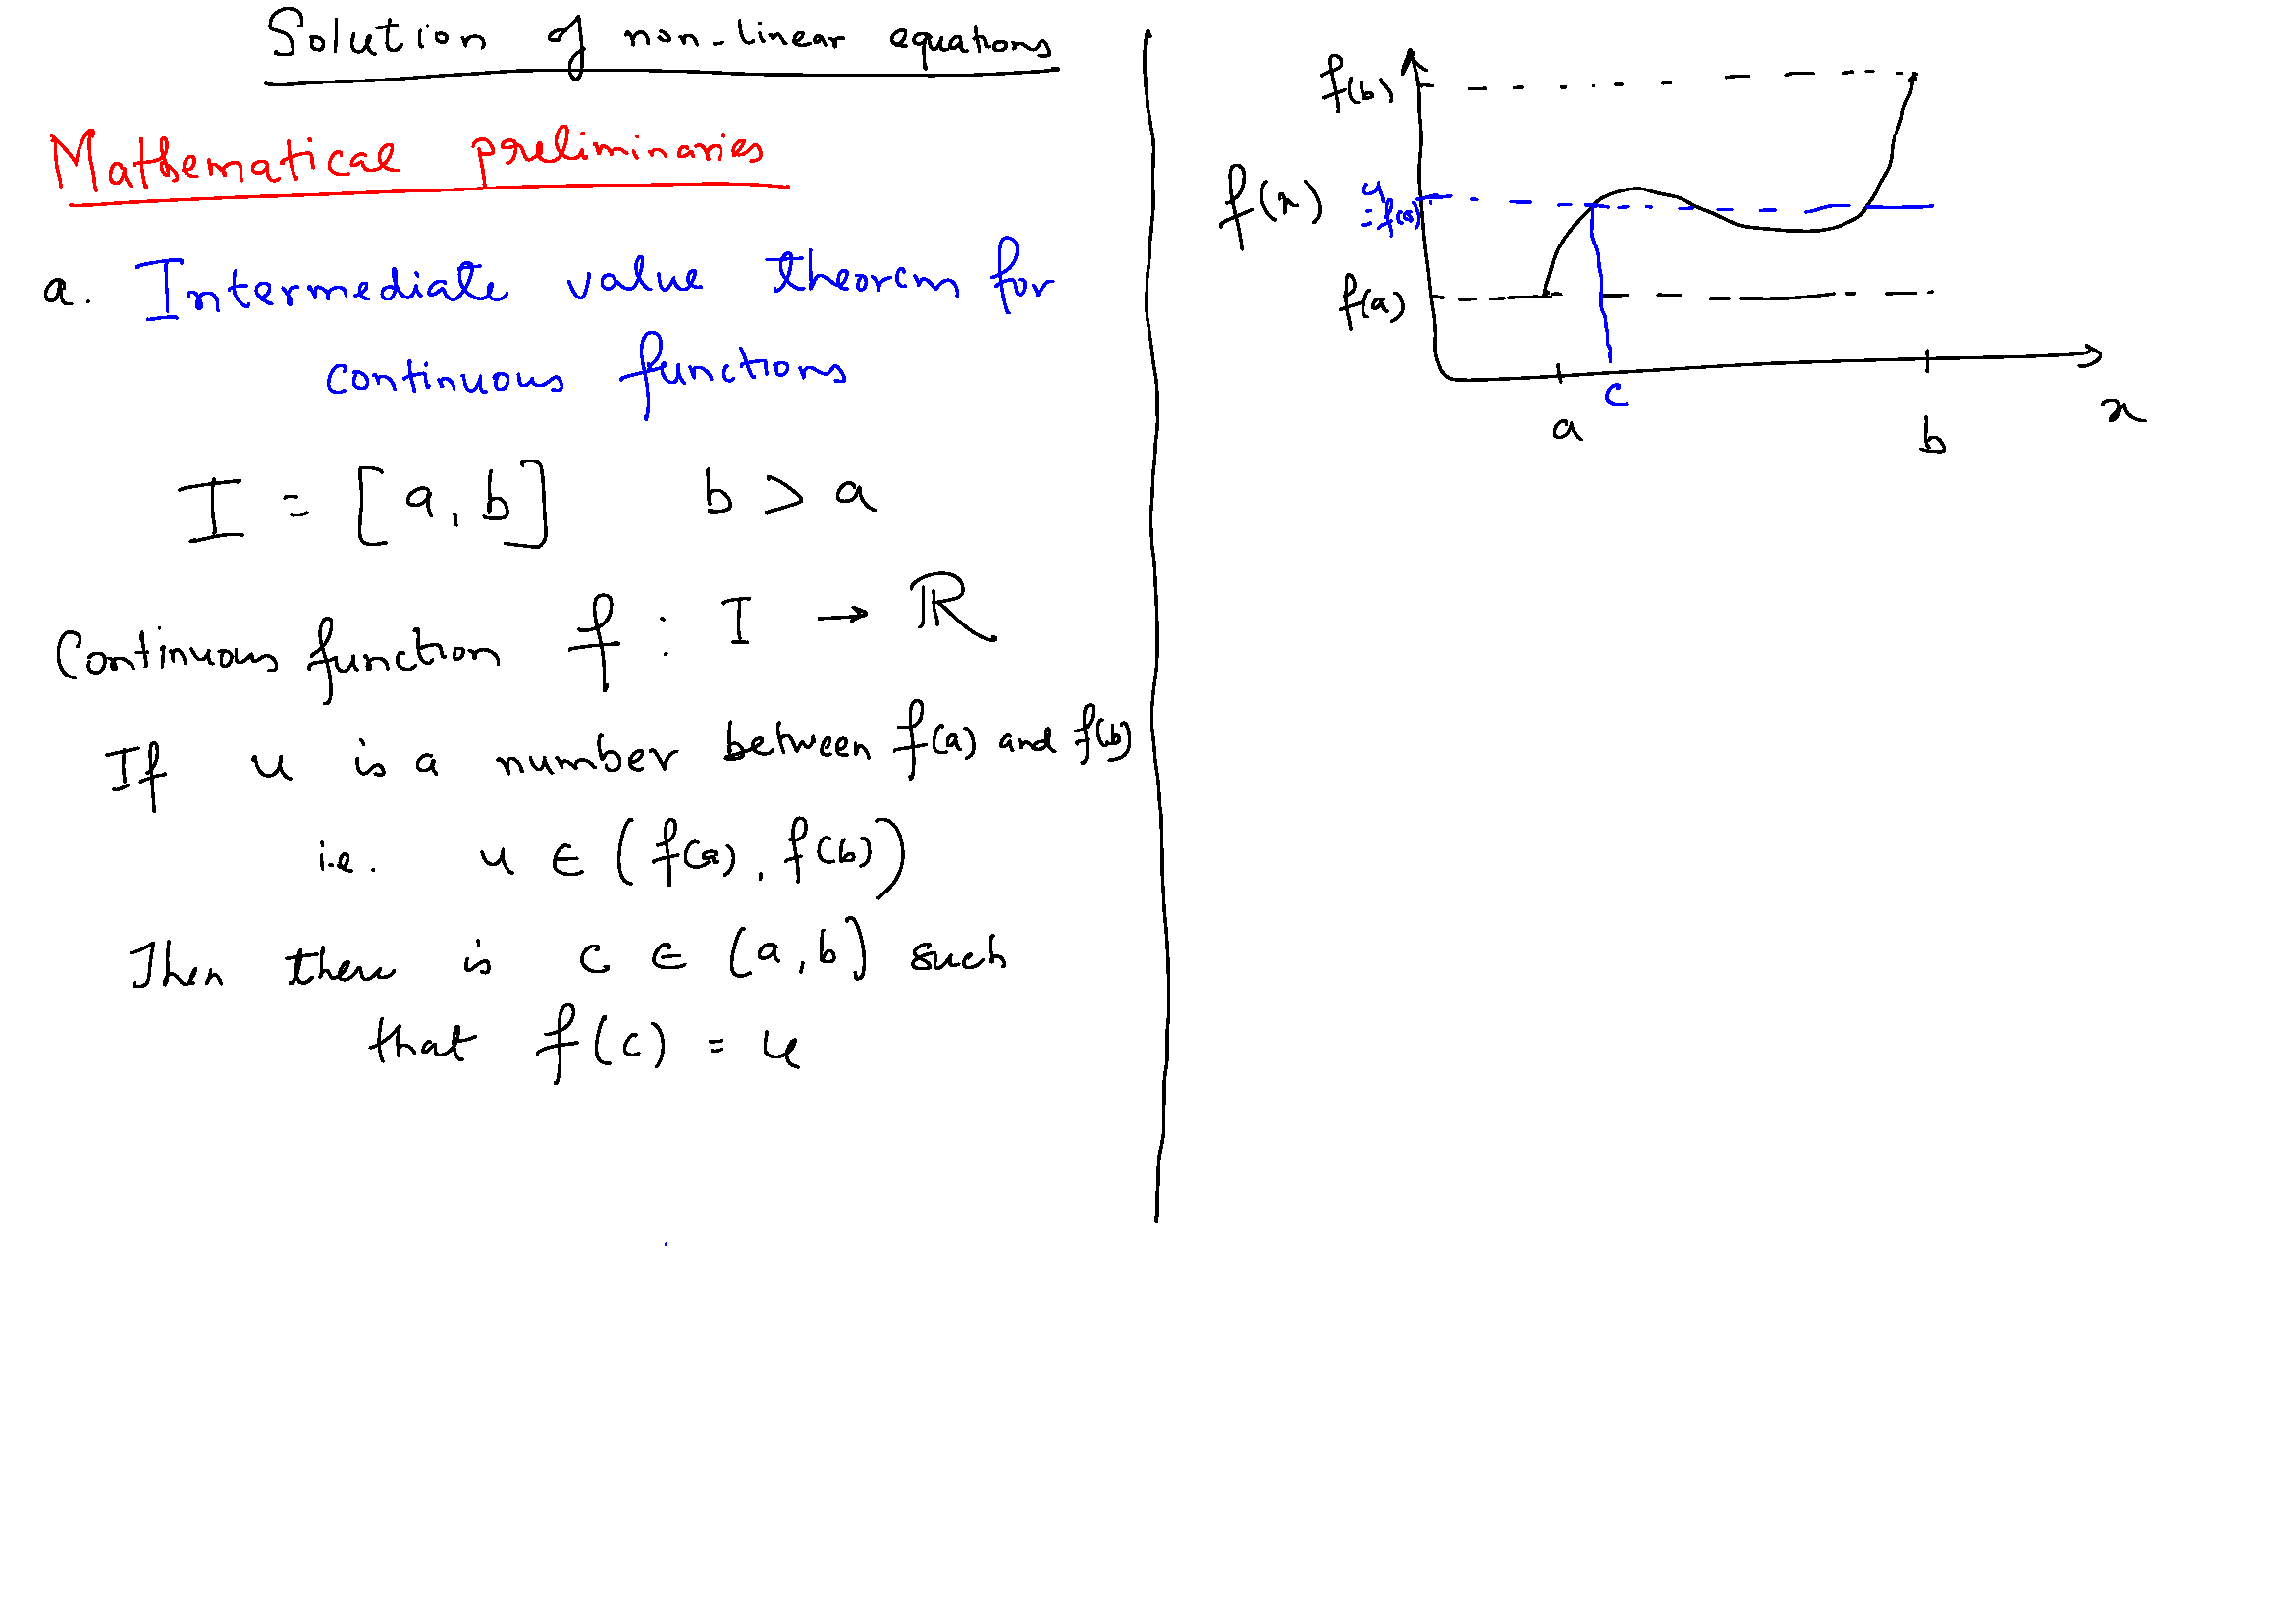 Solution of non-linear equations
Mathematical preliminaries
a. Intermediate value theorem for
continuous functions
I = [a, b] b > a
Continuous function f : I → ℝ
If u is a number between f(a) and f(b)
i.e. u ∈ (f(a), f(b))
Then there is c ∈ (a, b) such
that f(c) = u
f(b)
f(x)
u
= f(c)
f(a)
a
c
b
x